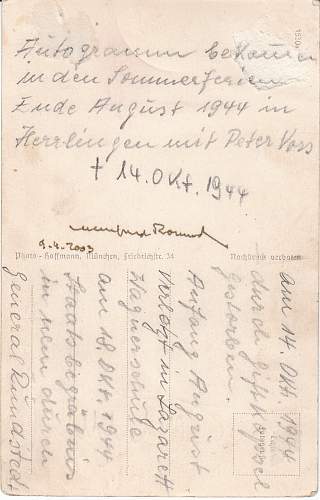 Autogramm bekommen
in den Sommerferien
Ende August 1944 in
Herrlingen mit Peter Voss
† 14. Okt. 1944
Manfred Rommel
9.4.2003
Photo-Hoffmann, München, Friedrichstr. 34
Nachdruck verboten
am 14. Okt. 1944
durch Giftkapsel
gestorben.
Anfang August
verlegt in Lazarett
Wagnerschule
am 18. Okt. 1944
Staatsbegräbnis
in Ulm durch
General Rundstedt